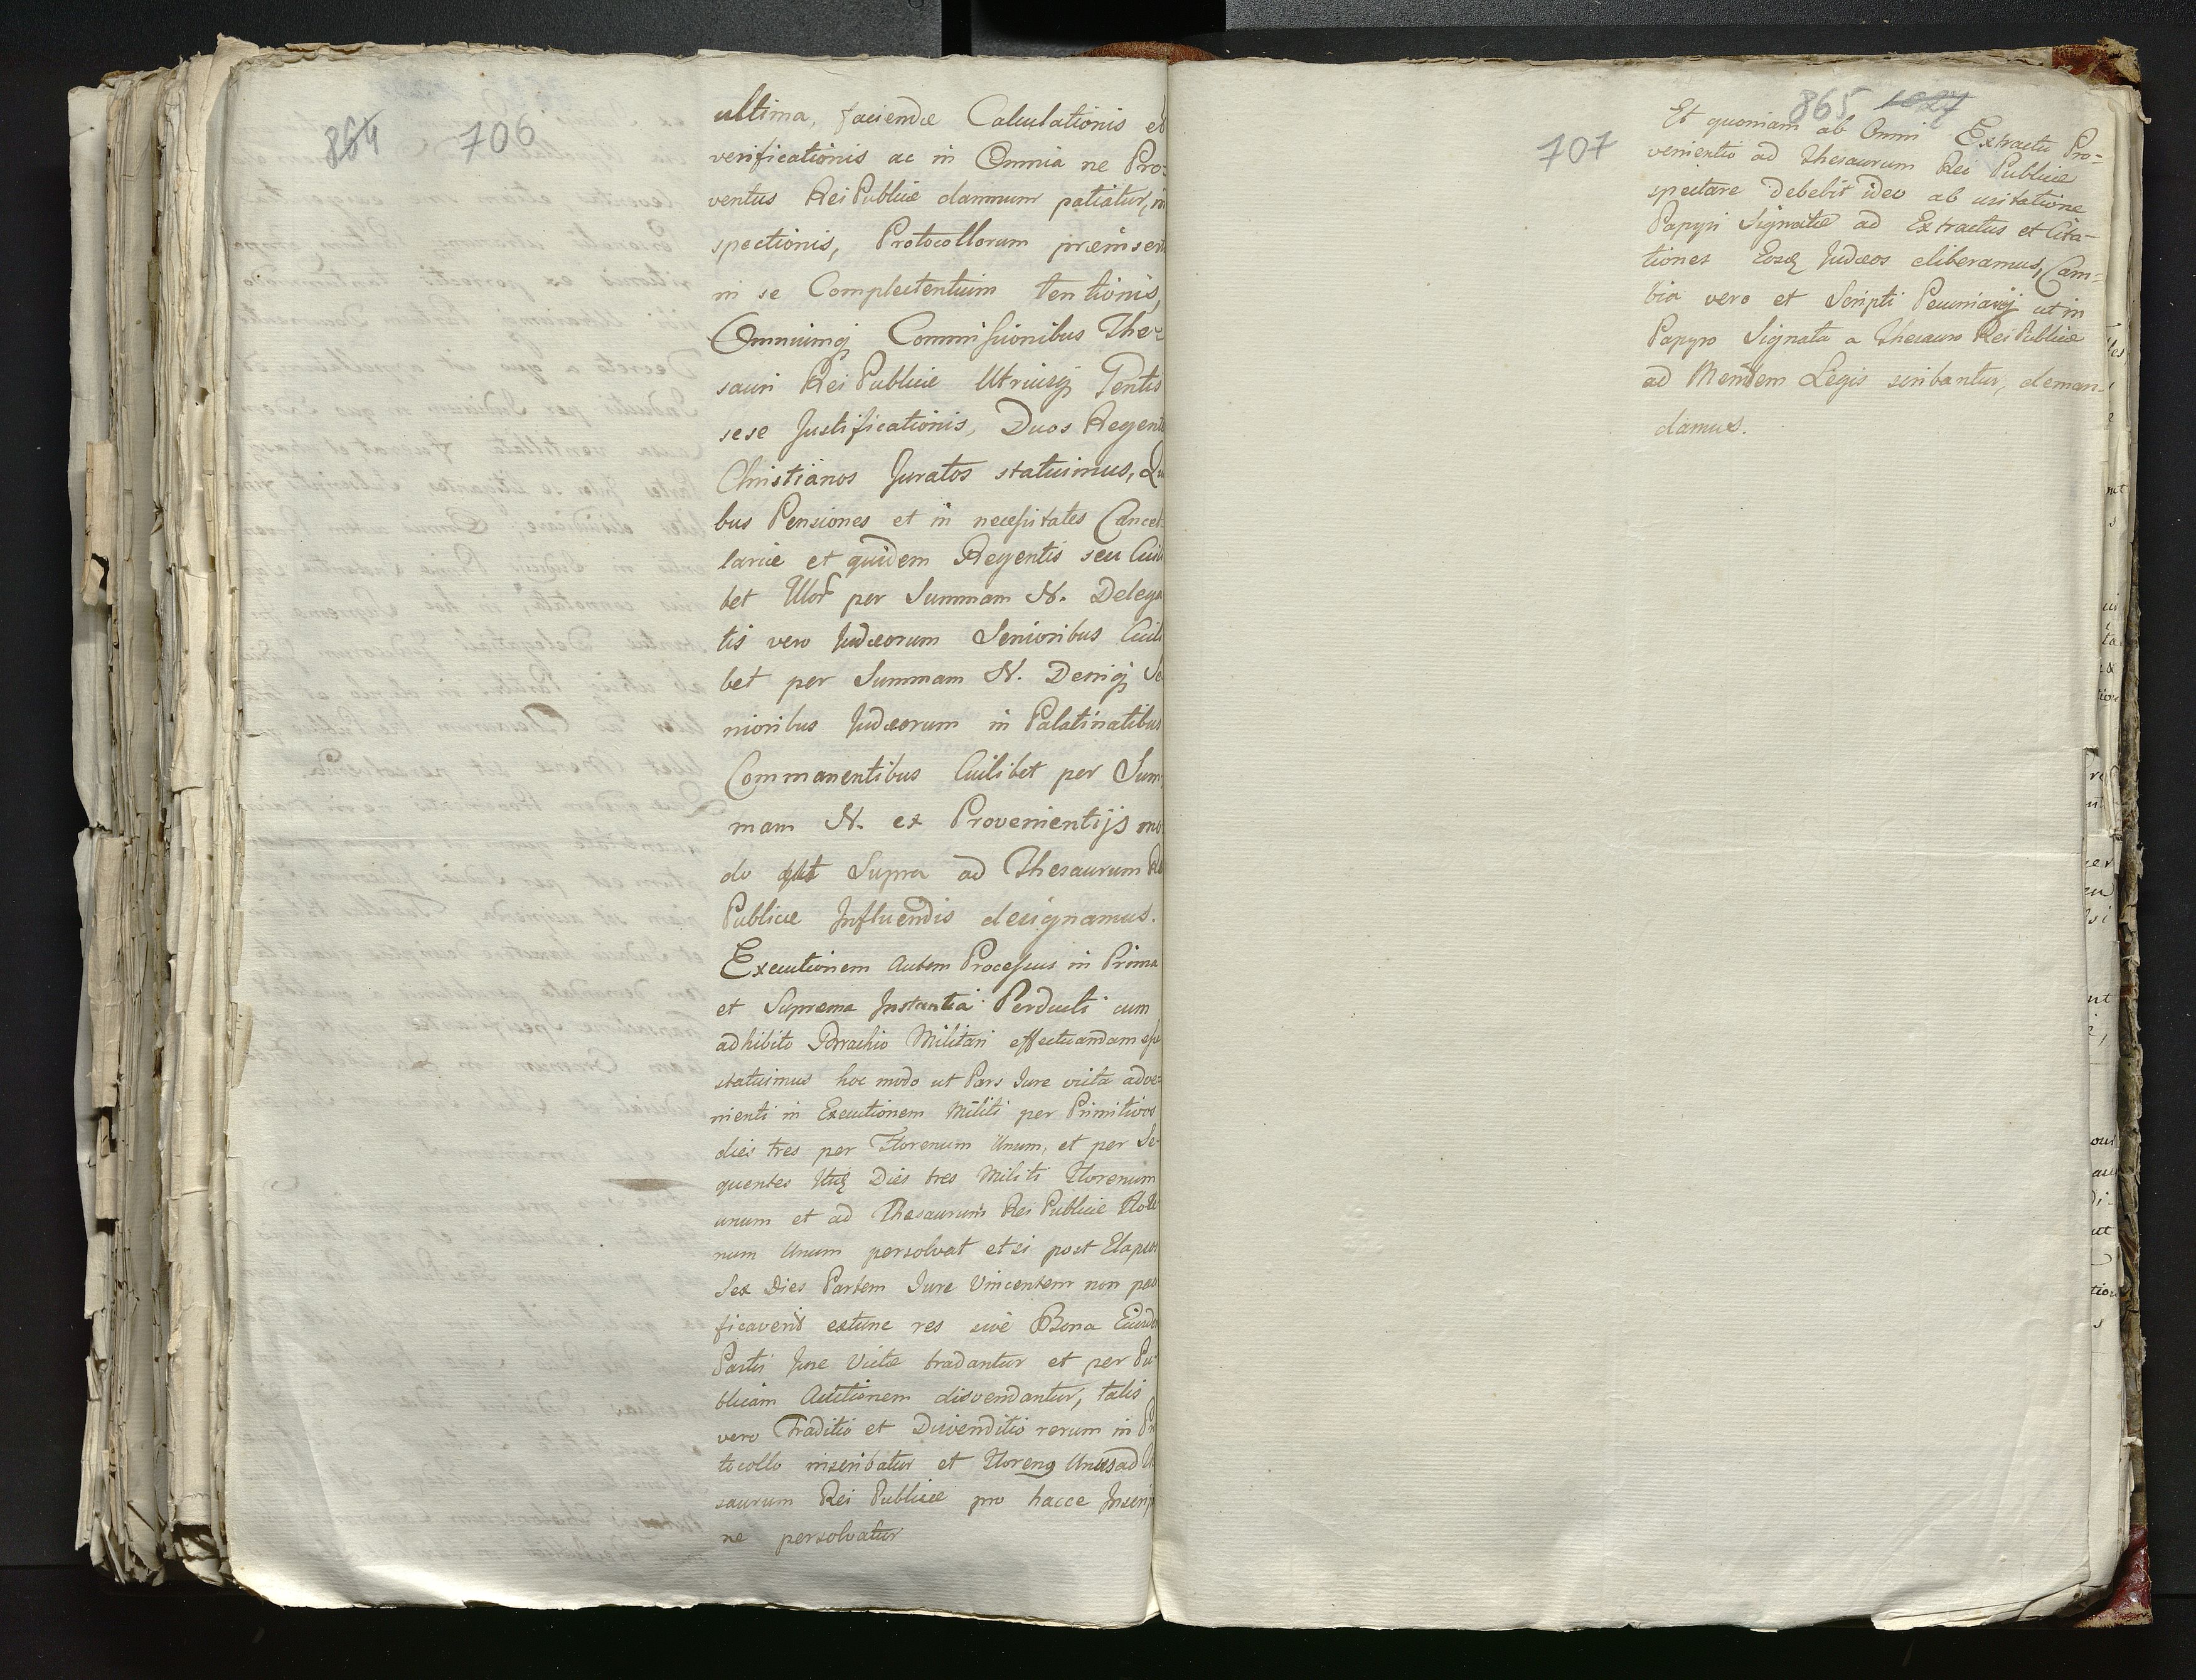 864 706
ultima, faciendæ Calculationis et
verificationis ac in Omnia ne Pro=
ventus Rei Publicæ damnum patiatur, in
spectionis, Protocollorum præinsert
in se Complectentium tentionis,
Omniumq Commissionibus The=
sauri Rei Publicæ Utriusq Gentis
sese Justificationis, Duos Regent
Christianos Juratos statuimus, Qu
bus Pensiones et in necessitates Cancel
lariæ et quidem Regentis seu Cuili
bet Illor per Summam N. Delega
tis vero Judæorum Senioribus Cuili
bet per Summam N. Deniq Se
nioribus Judæorum in Palatinatibus
Commanentibus Cuilibet per Sum
mam N. ex Provenientijs mo
do ut Supra ad Thesaurum Rei
Publicæ Influendis designamus.
Executionem Autem Processus in Prima
et Suprema Instantia Perducti cum
adhibito Brachio Militari effectuandam esse
statuimus hoc modo ut Pars Jure victa adve=
nienti in Executionem Militi per Primitivos
dies tres per Florenum Unum, et per Se-
quentes Dies tres Militi Florenum
unum et ad Thesaurum Rei Publicæ Flore
num Unum persolvat et si post Elapsos
Sex Dies Partem Jure Vincentem non paci
ficaverit extunc res sive Bona Eiusde
Partis Jure Victæ tradantur et per Pu-
blicam Auctionem disvendantur, talis
vero Traditio et Disvenditio rerum in Pr
tocollo inscribatur et Floreng Unus ad The
saurum Rei Publicæ pro hacce Inscrip
ne persolvatur
865 1027
707
Et quoniam ab Omni Extractu Pro=
venientio ad Thesaurum Rei Publicæ
spectare debebit ideo ab usitatione
Papyri Signatæ ad Extractus et Cita-
tiones Eosq Judæos eliberamus, Cam=
bia vero et Scripti Pecuniarij ut in
Papyro Signata a Thesauro Rei Publicæ
ad Mentem Legis scribantur, deman-
damus.